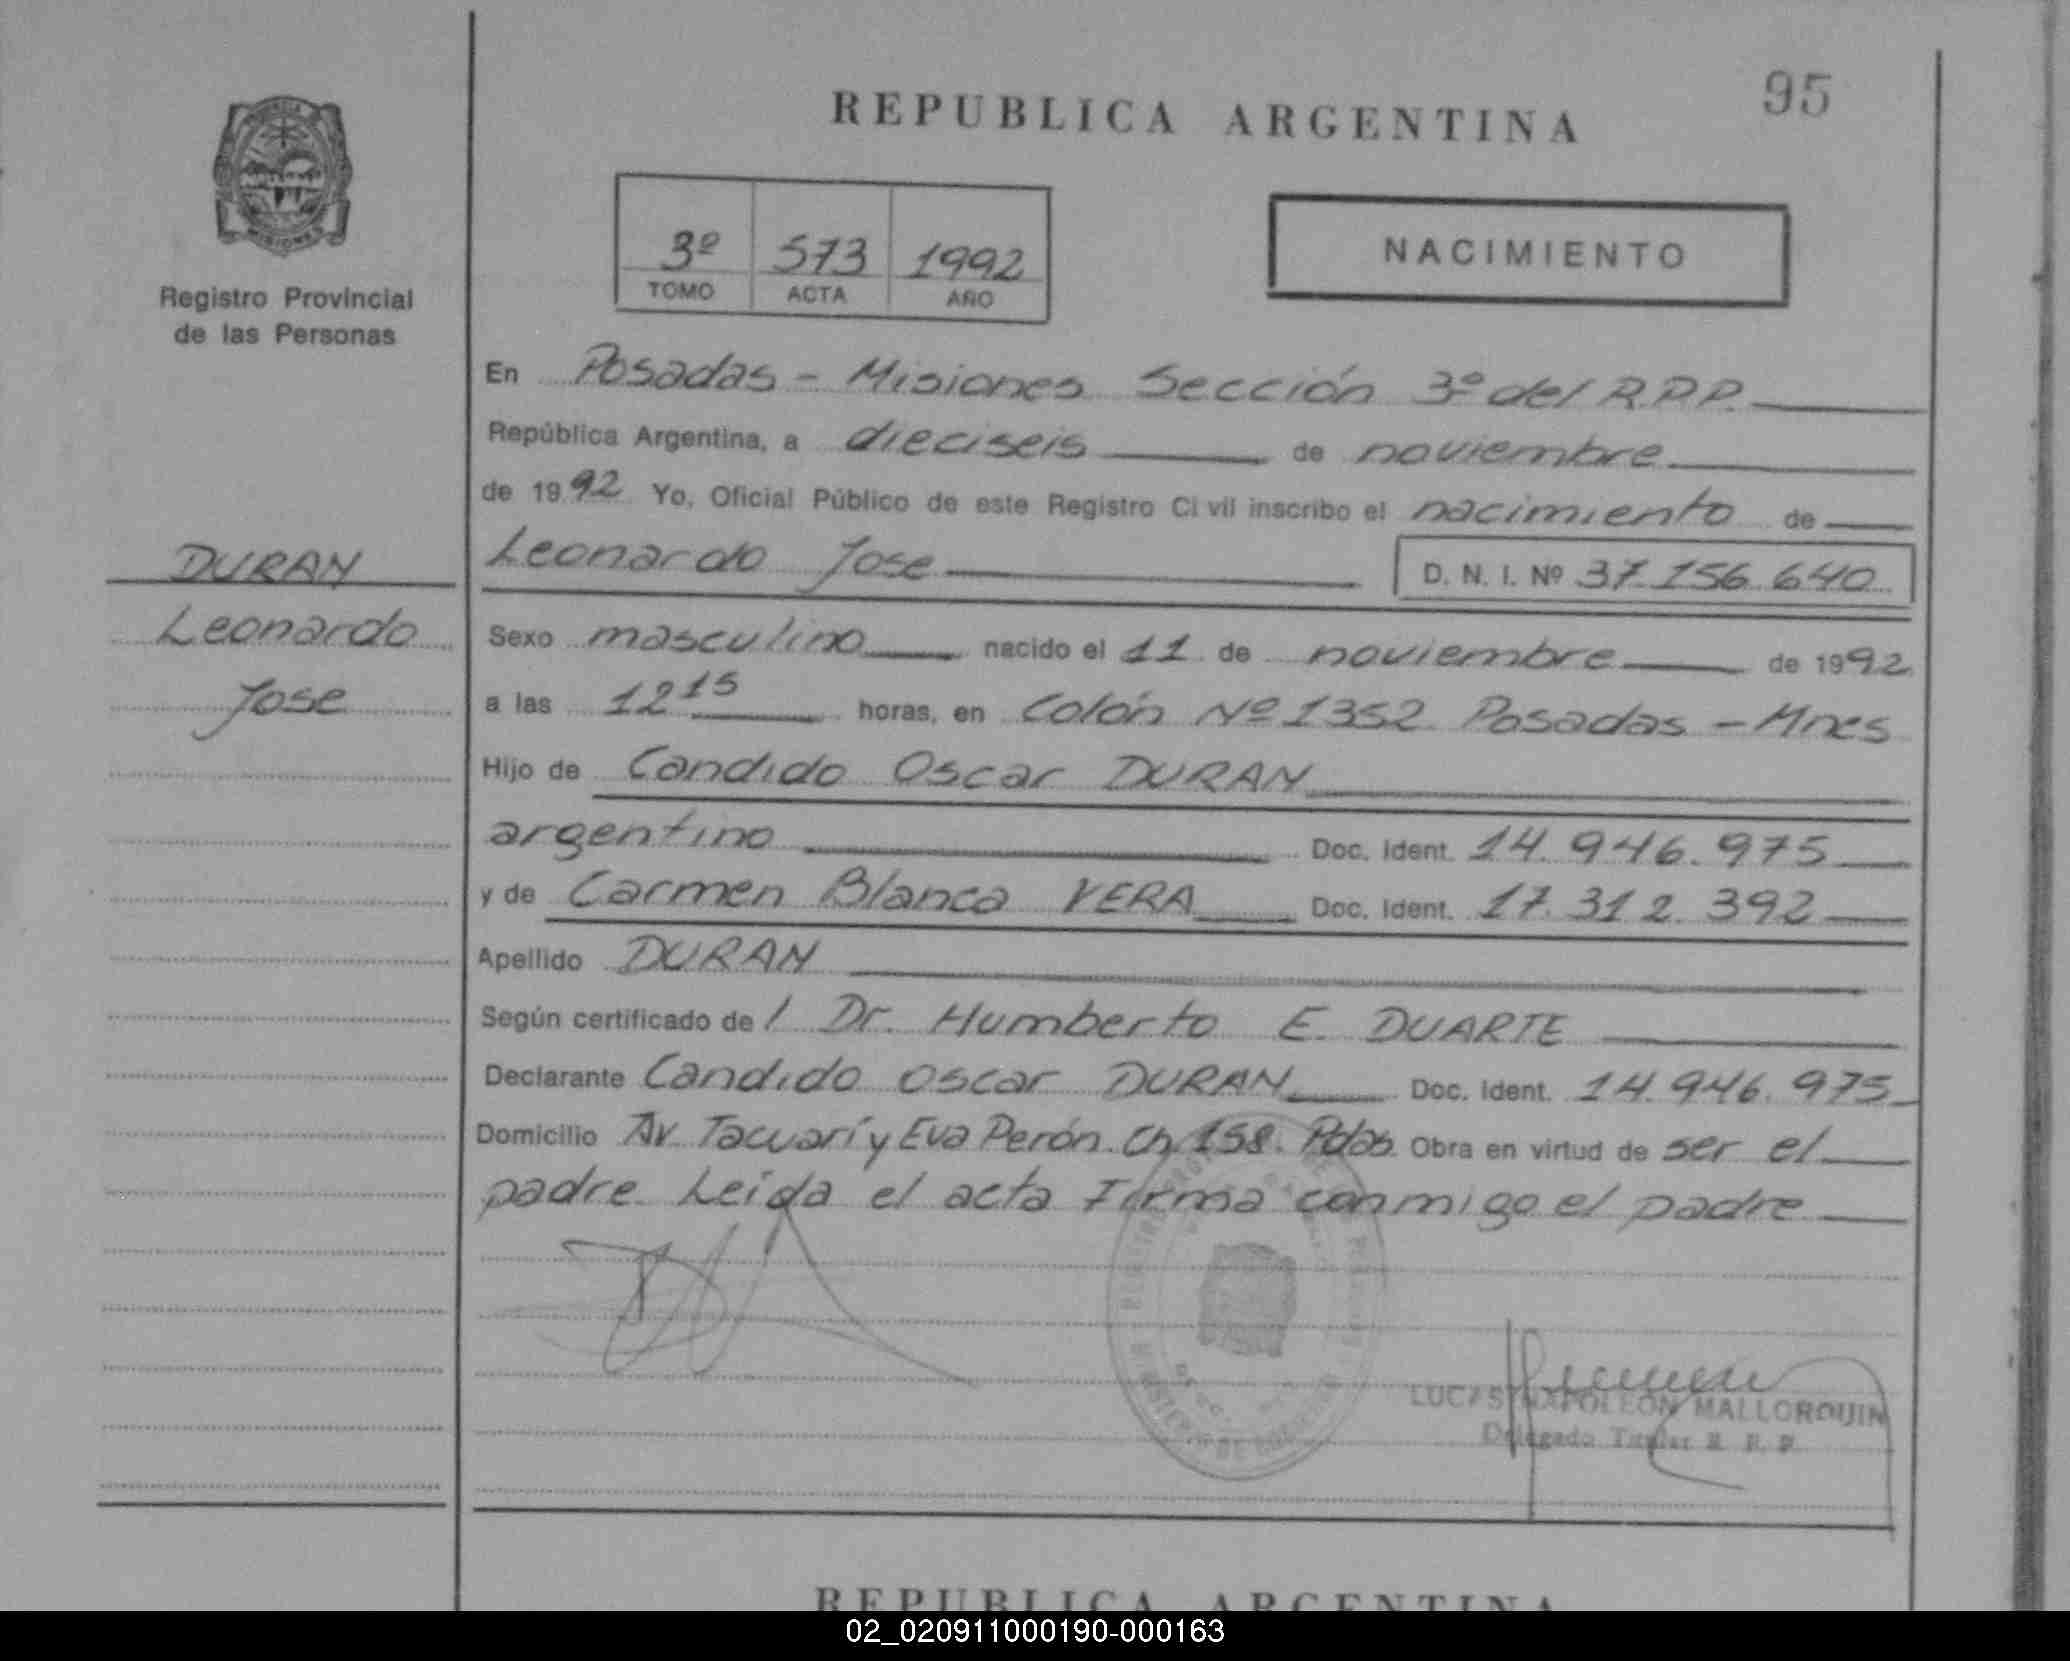 95
REPUBLICA ARGENTINA
PROVINCIA
MISIONES
Registro Provincial
de las Personas
3º 573 1992
TOMO ACTA AÑO
NACIMIENTO
En Posadas - Misiones Sección 3º del R.P.P.
República Argentina, a dieciseis de noviembre
de 1992 Yo, Oficial Público de este Registro Civil inscribo el nacimiento de
Leonardo Jose D. N. I. Nº 37.156.640
DURAN
Leonardo
Jose
Sexo masculino nacido el 11 de noviembre de 1992
a las 12 15 horas, en Colón Nº 1352 Posadas - Mnes
Hijo de Candido Oscar DURAN
argentino Doc. Ident. 14.946.975
y de Carmen Blanca VERA Doc. Ident. 17.312.392
Apellido DURAN
Según certificado del Dr. Humberto E. DUARTE
Declarante Candido Oscar DURAN Doc. Ident. 14.946.975
Domicilio Av. Tacuarí y Eva Perón Ch. 158. Pdas Obra en virtud de ser el
padre Leida el acta Firma conmigo el padre
LUCAS NAPOLEON MALLORQUIN
Delegado Titular R. P. P.
REPUBLICA ARGENTINA
02_020911000190-000163